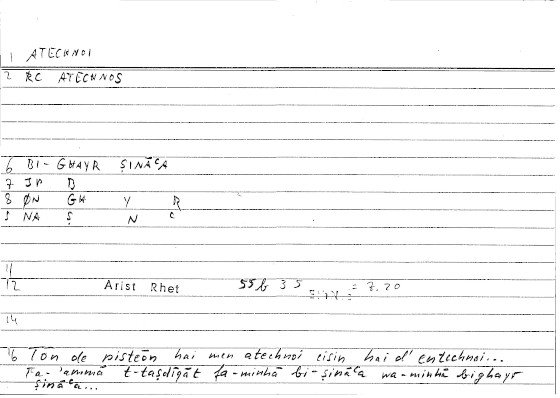 1 ATECHNOI
2 RC ATECHNOS
6 BI-GHAYR ṢINĀᶜA
7 JP Ḅ
8 ØN GH Y R
9 NA Ṣ N ᶜ
11
12 Arist Rhet 55b 35 = 7.20
14
16 Tōn de pisteōn hai men atechnoi eisin hai d' entechnoi...
Fa-'ammā t-taṣdīqāt fa-minhā bi-ṣināᶜa wa-minhā bighayr
ṣināᶜa...